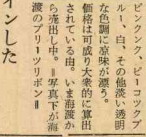 ピンクンク、ピーコツクブ
ルー、白、その他淡い透明
な色調に涼味が漂う。
価格は可成り大衆的に算出
されている由。いま海渡か
ら売出し中。=写真下が海
渡のプリーツリボン=
インした